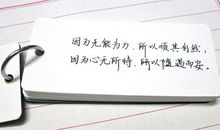 因为无能为力，所以顺其自然；
因为心无所恃，所以随遇而安。